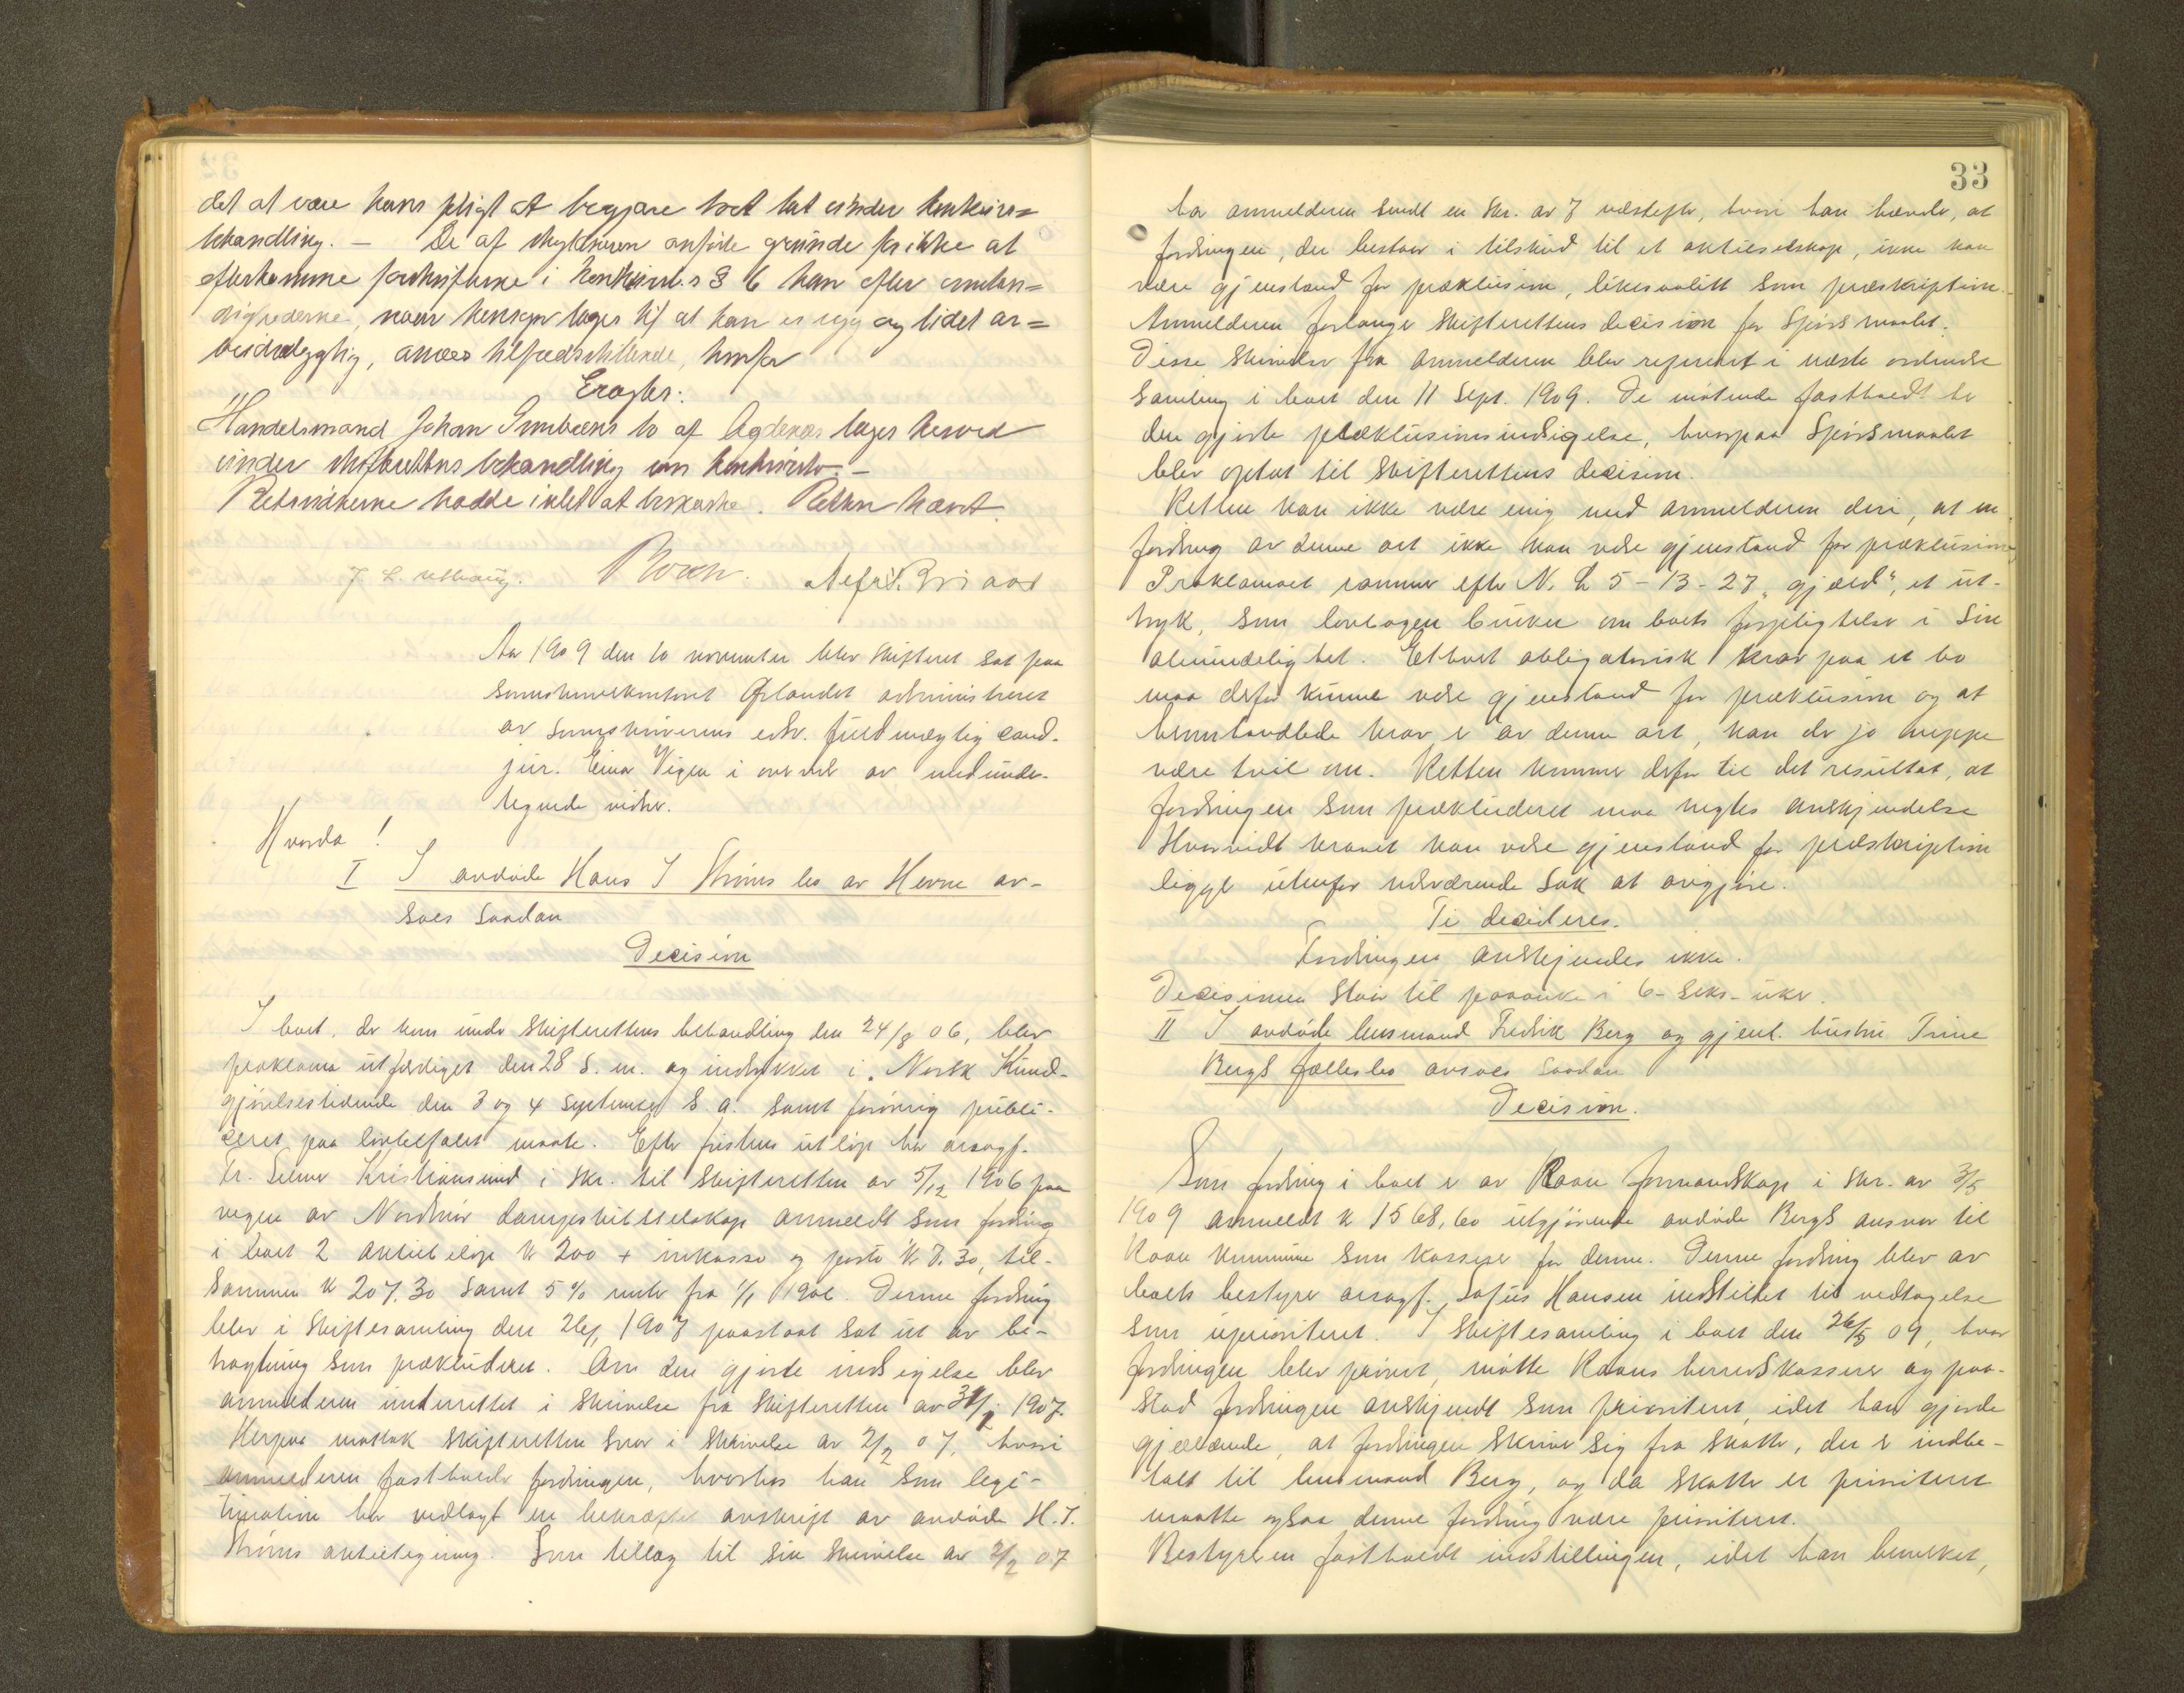 det at være hans pligt at begjære boet tat under konkurs=
behandling. – De af skyldneren anførte grunde for ikke at
efterkomme forskrifterne i konkursl.s § 6 kan efter omstæn=
dighederne, naar hensyn tages til at han er syg og lidet ar=
beidsdygtig, ansees tilfredsstillende, hvorfor
Eragtes:
Handelsmand Johan bo af Agdenæs tages herved
under skifterettens behandling som konkursbo. –
Retsvidnerne hadde intet at bemerke. Retten hævet.
Aar 1909 den 10 november blev skifteret sat paa
sorenskriverkontoret Ørlandet administreret
av sorenskriverens edsv. fuldmægtig cand.
jur. Einar Vigen i overvær av medunder-
tegnede vidner.
Hvorda!
I I avdøde Hans J Strøms bo av Hevne av-
saes saadan
Decision
I boet, der kom under skifterettens behandling den 24/8 06, blev
proklama utfærdiget den 28 s. m. og indrykket i „Norsk Kund-
gjørelsestidende den 3 og 4 september s. a. samt forøvrig publi-
ceret paa lovbefalet maate. Efter fristens utløp har orsagf.
Fr. Selmer Kristiansund i skr. til skifteretten av 5/12 1906 paa
vegne av Nordmør dampskibsselskap anmeldt som fordring
i boet 2 aktiebeløp kr 200 + inkasso og porto kr 7.30, til-
sammen kr 207.30 samt 5 % rente fra 1/1 1906. Denne fordring
blev i skiftesamling den 26/1 1907 paastaat sat ut av be-
tragtning som prækluderet. Om den gjorte indsigelse blev
anmelderen underrettet i skrivelse fra skifteretten av 31/1 1907.
Herpaa mottok skifteretten svar i skrivelse av 2/2 07, hvori
anmelderen fastholder fordringen, hvorhos han som legi-
timation har vedlagt en bekræftet avskrift av avdøde H. J.
Strøms aktietegning. Som tillæg til sin skrivelse av 2/2 07
33
har anmelderen sendt en skr. av 7 næstefter, hvori han hævder, at
fordringen, der bestaar i tilskud til et aktieselskap, ikke kan
være gjenstand for præklusion, likesaalitt som præskription.
Anmelderen forlanger skifterettens decision for spørsmaalet.
Disse skrivelser fra anmelderen blev refereret i næste ordinære
samling i boet den 11 sept. 1909. De møtende fastholdt be
den gjorte præklusionsindsigelse, hvorpaa spørsmaalet
blev optat til skifterettens decision.
Retten kan ikke være enig med anmelderen deri, at en
fordring av denne art ikke kan være gjenstand for præklusion
Proklamaet rammer efter N. L 5 – 13 – 27 „gjæld", et ut-
tryk, som lovbogen bruker om boets forpligtelser i sin
almindelighet. Ethvert obligatorisk krav paa et bo
maa derfor kunne være gjenstand for præklusion og at
omhandlede krav er av denne art, kan der jo neppe
være tvil om. Retten kommer derfor til det resultat, at
fordringen som prækluderet maa negtes anerkjendelse
Hvorvidt kravet kan være gjenstand for præskription
ligger utenfor nærværende sak at avgjøre.
Ti decideres.
Fordringen anerkjendes ikke.
Decisionen staar til paaanke i 6 – seks – uker.
II I avdøde lensmand Fredrik Berg og gjenl. hustru Trine
Bergs fællesbo avsaes saadan
Decision.
Som fordring i boet er av Roan formandskap i skr. av 3/5
1909 anmeldt kr 1568,60 utgjørende avdøde Bergs ansvar til
Roan kommune som kasserer for denne. Denne fordring blev av
boets bestyrer orsagf. Sofus Hansen indstillet til vedtagelse
som uprioritert. I skiftesamling i boet den 26/5 09, hvor
fordringen blev prøvet, møtte Roans herredskasserer og paa-
stod fordringen anerkjendt som prioritert, idet han gjorde
gjældende, at fordringen skriver sig fra skatter, der er indbe-
talt til lensmand Berg, og da skatter er prioritert
maatte ogsaa denne fordring være prioritert.
Bestyreren fastholdt indstillingen, idet han bemerket,